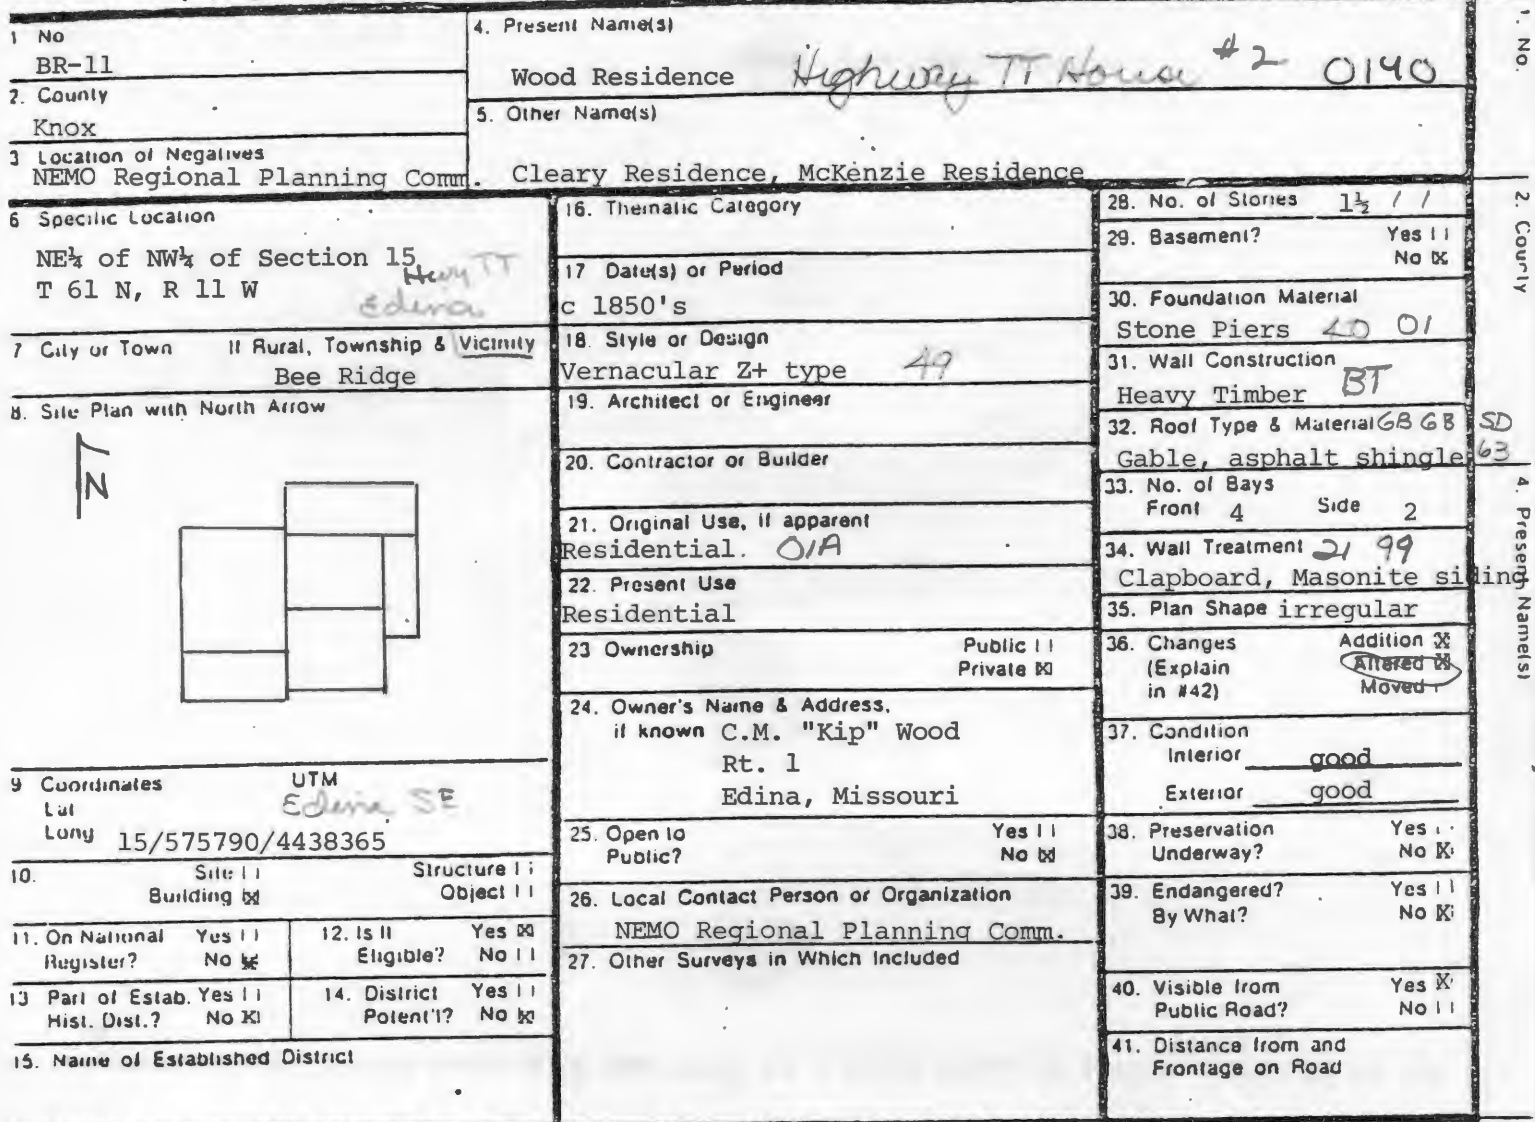 1 No
BR-11
2. County
Knox
3 Location of Negatives
NEMO Regional Planning Comm.
4. Present Name(s)
Wood Residence Highway TT House #2 0140
5. Other Name(s)
Cleary Residence, McKenzie Residence
6 Specific Location
NE¼ of NW¼ of Section 15
T 61 N, R 11 W
Hwy TT
Edina
7 City or Town If Rural, Township & Vicinity
Bee Ridge
8. Site Plan with North Arrow
N
9 Coordinates UTM
Lat
Edina SE
Long 15/575790/4438365
10. Site | | Structure | |
Building [X] Object | |
11. On National Yes | |
Register? No [X]
12. Is It Yes [X]
Eligible? No | |
13 Part of Estab. Yes | |
Hist. Dist.? No [X]
14. District Yes | |
Potent'l? No [X]
15. Name of Established District
16. Thematic Category
17 Date(s) or Period
c 1850's
18. Style or Design
Vernacular Z+ type 49
19. Architect or Engineer
20. Contractor or Builder
21. Original Use, if apparent
Residential. 01A
22. Present Use
Residential
23 Ownership Public | |
Private [X]
24. Owner's Name & Address,
if known C.M. "Kip" Wood
Rt. 1
Edina, Missouri
25. Open to Yes | |
Public? No [X]
26. Local Contact Person or Organization
NEMO Regional Planning Comm.
27. Other Surveys in Which Included
28. No. of Stories 1½ / /
29. Basement? Yes | |
No [X]
30. Foundation Material
Stone Piers 40 01
31. Wall Construction
Heavy Timber BT
32. Roof Type & Material GB GB SD
Gable, asphalt shingle 63
33. No. of Bays
Front 4 Side 2
34. Wall Treatment 21 99
Clapboard, Masonite siding
35. Plan Shape irregular
36. Changes Addition [X]
(Explain Altered [X]
in #42) Moved |
37. Condition
Interior good
Exterior good
38. Preservation Yes | |
Underway? No [X]
39. Endangered? Yes | |
By What? No [X]
40. Visible from Yes [X]
Public Road? No | |
41. Distance from and
Frontage on Road
1. No.
2. County
4. Present Name(s)